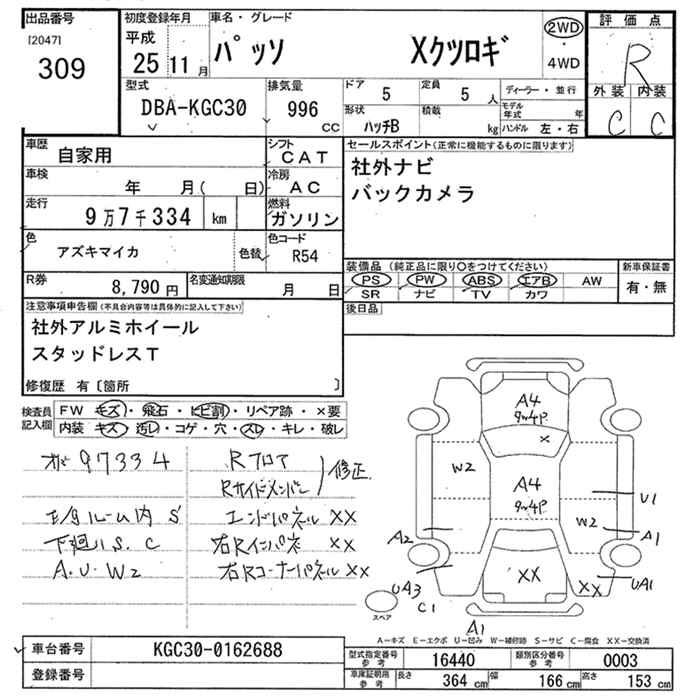 出品番号
[2047]
309
初度登録年月
平成
25 11 月
車名・グレード
パッソ Xクツロギ
2WD
・
4WD
評価点
R
外装 内装
C C
型式
DBA-KGC30
排気量
996 CC
ドア 5
定員 5 人
形状 ハッチB
積載 kg
ディーラー・並行
モデル年式 年
ハンドル 左・右
車歴
自家用
シフト
CAT
車検
年 月( 日)
冷房
AC
走行
9万7千334 km
燃料
ガソリン
色
アズキマイカ
色替
色コード
R54
セールスポイント(正常に機能するものに限ります)
社外ナビ
バックカメラ
装備品 (純正品に限り○をつけてください)
PS PW ABS エアB AW
SR ナビ TV カワ
新車保証書
有・無
R券
8,790 円
名変通知期限
月 日
後日品
注意事項申告欄(不具合内容等は具体的に記入して下さい)
社外アルミホイール
スタッドレスT
修復歴 有〔箇所 〕
検査員
記入欄
FW キズ・飛石・ヒビ割・リペア跡・×要
内装 キズ・汚レ・コゲ・穴・スレ・キレ・破レ
97334
Rフロア
Rサイドメンバー
修正
エンドパネル XX
右Rインパネ XX
右Rコーナーパネル XX
ルーム内 S
下廻り S.C
A.U.W2
A4
X
W2
A4
W2
U1
A2
A1
XX
XX
UA1
UA3
C1
A1
スペア
A-キズ E-エクボ U-凹み W-補修跡 S-サビ C-腐食 XX-交換済
車台番号
KGC30-0162688
登録番号
型式指定番号
参考
16440
類別区分番号
参考
0003
車庫証明用
参考
長さ 364 cm
幅 166 cm
高さ 153 cm